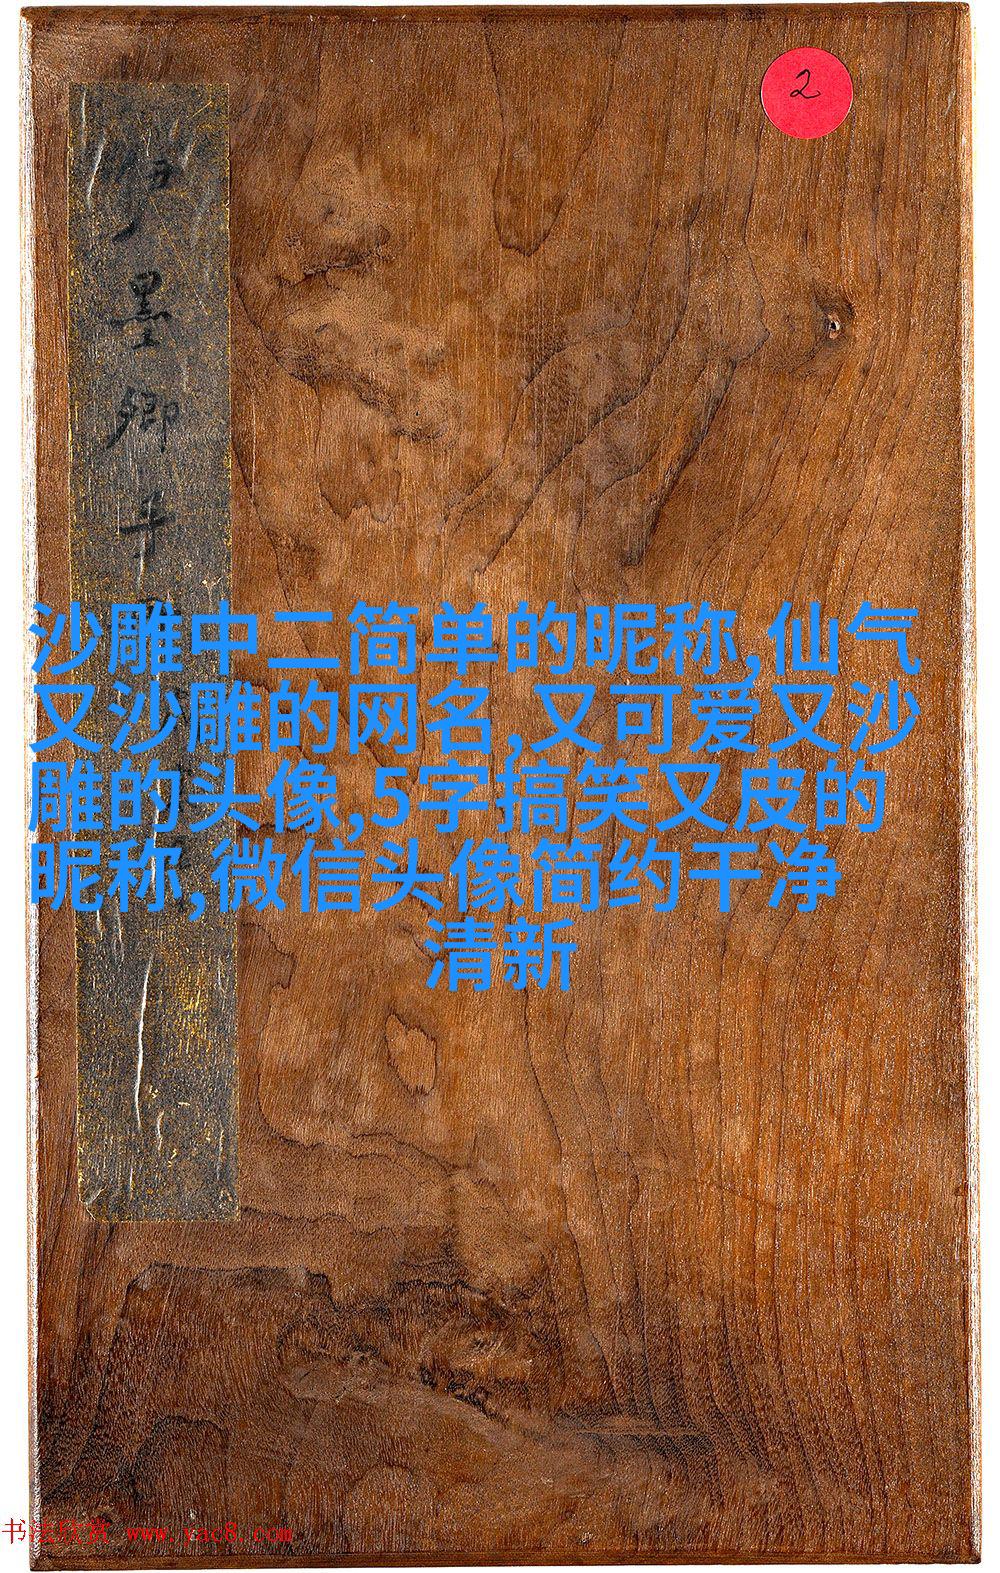 2
墨卿
沙雕中二简单的昵称,仙气
又沙雕的网名,又可爱又沙
雕的头像,5字搞笑又皮的
昵称,微信头像简约干净
清新
书法欣赏 www.yac8.com